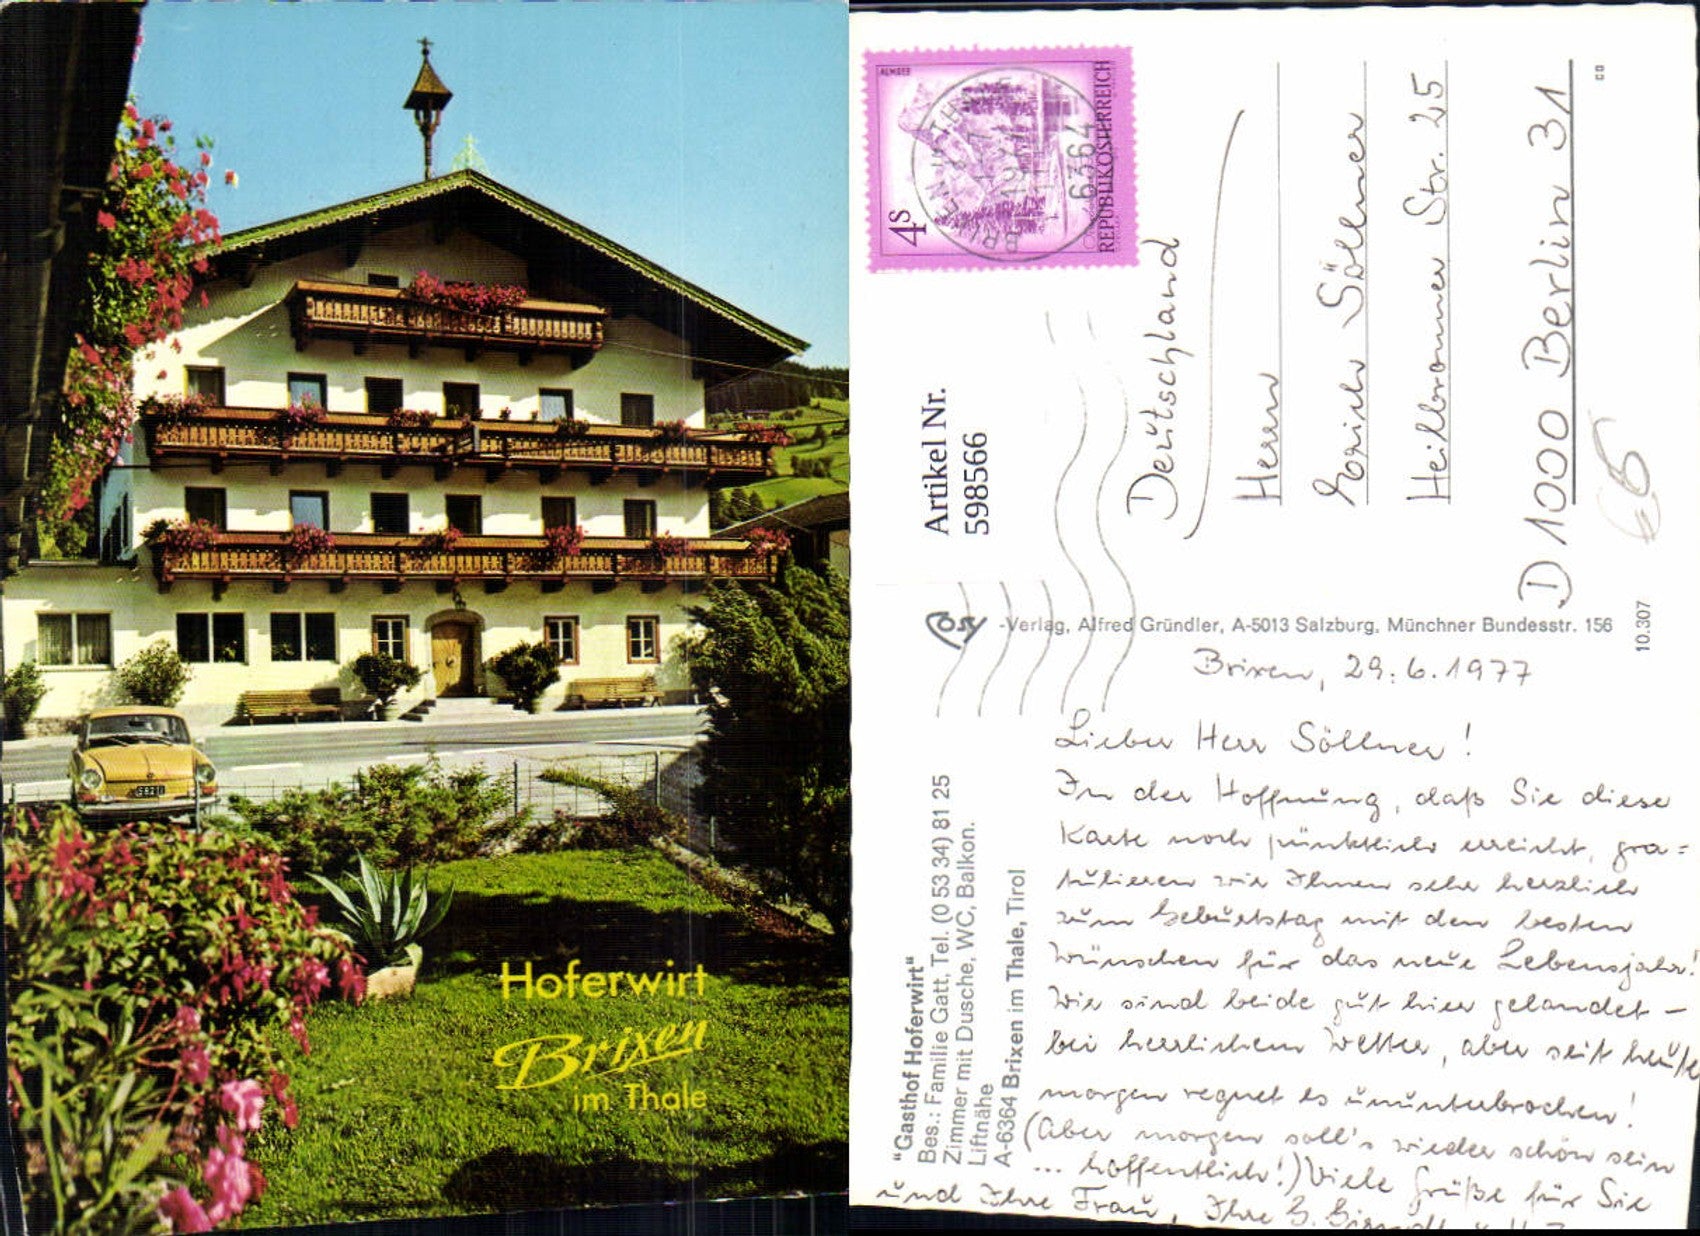 Hoferwirt
Brixen
im Thale
S 821
ALMSEE
4 S
REPUBLIK ÖSTERREICH
BRIXEN IM THALE
1977
6364
Artikel Nr.
598566
Deutschland
Herrn
Erich Söllner
Heilbronner Str. 25
D 1000 Berlin 31
-Verlag, Alfred Gründler, A-5013 Salzburg, Münchner Bundesstr. 156
10.307
"Gasthof Hoferwirt"
Bes.: Familie Gatt, Tel. (0 53 34) 81 25
Zimmer mit Dusche, WC, Balkon.
Liftnähe
A-6364 Brixen im Thale, Tirol
Brixen, 29.6.1977
Lieber Herr Söllner!
In der Hoffnung, daß Sie diese
Karte noch pünktlich erreicht, gra=
tulieren wir Ihnen sehr herzlich
zum Geburtstag mit den besten
Wünschen für das neue Lebensjahr!
Wir sind beide gut hier gelandet -
bei herrlichem Wetter, aber seit heute
morgen regnet es ununterbrochen!
(Aber morgen soll's wieder schön sein
... hoffentlich!) Viele Grüße für Sie
und Ihre Frau, Ihre G.